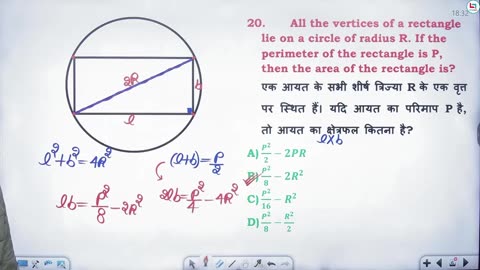 18:32
20. All the vertices of a rectangle
lie on a circle of radius R. If the
perimeter of the rectangle is P,
then the area of the rectangle is?
एक आयत के सभी शीर्ष त्रिज्या R के एक वृत्त
पर स्थित हैं। यदि आयत का परिमाप P है,
तो आयत का क्षेत्रफल कितना है?
l×b
A) P²/2 − 2PR
B) P²/8 − 2R²
C) P²/16 − R²
D) P²/8 − R²/2
2R
b
l
l²+b² = 4R²
(l+b) = P/2
2lb = P²/4 − 4R²
lb = P²/8 − 2R²